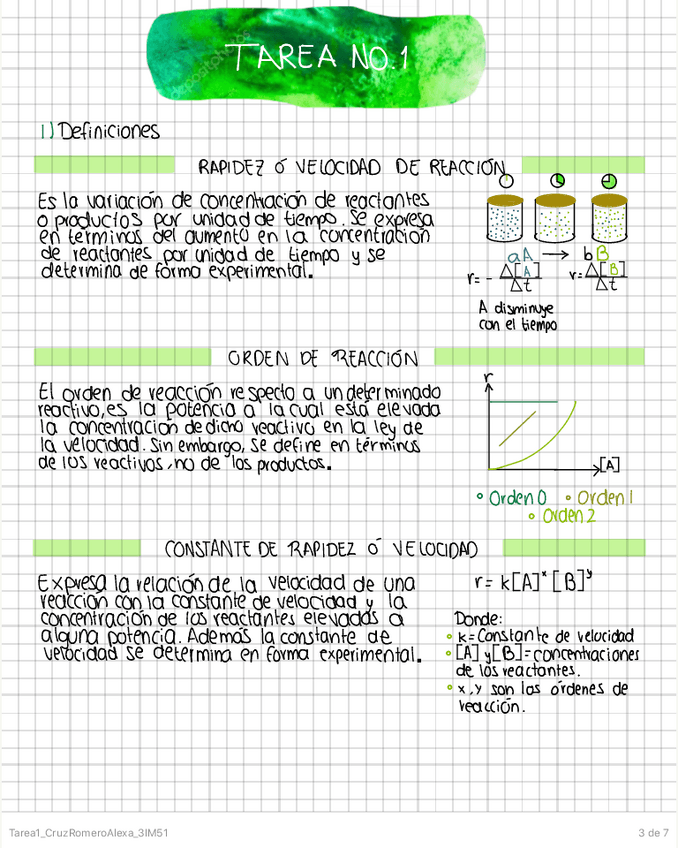 TAREA NO.1
depositphotos
1) Definiciones
RAPIDEZ Ó VELOCIDAD DE REACCIÓN
Es la variación de concentración de reactantes
o productos por unidad de tiempo. Se expresa
en términos del aumento en la concentración
de reactantes por unidad de tiempo y se
determina de forma experimental.
aA → bB
r= - Δ[A] / Δt r= Δ[B] / Δt
A disminuye
con el tiempo
ORDEN DE REACCIÓN
El orden de reacción respecto a un determinado
reactivo, es la potencia a la cual está elevada
la concentración de dicho reactivo en la ley de
la velocidad. Sin embargo, se define en términos
de los reactivos, no de los productos.
r
[A]
Orden 0 Orden 1
Orden 2
CONSTANTE DE RAPIDEZ Ó VELOCIDAD
Expresa la relación de la velocidad de una
reacción con la constante de velocidad y la
concentración de los reactantes elevadas a
alguna potencia. Además la constante de
velocidad se determina en forma experimental.
r= k[A]ˣ [B]ʸ
Donde:
k= Constante de velocidad
[A] y [B]= concentraciones
de los reactantes.
x, y son los órdenes de
reacción.
Tarea1_CruzRomeroAlexa_3IM51
3 de 7